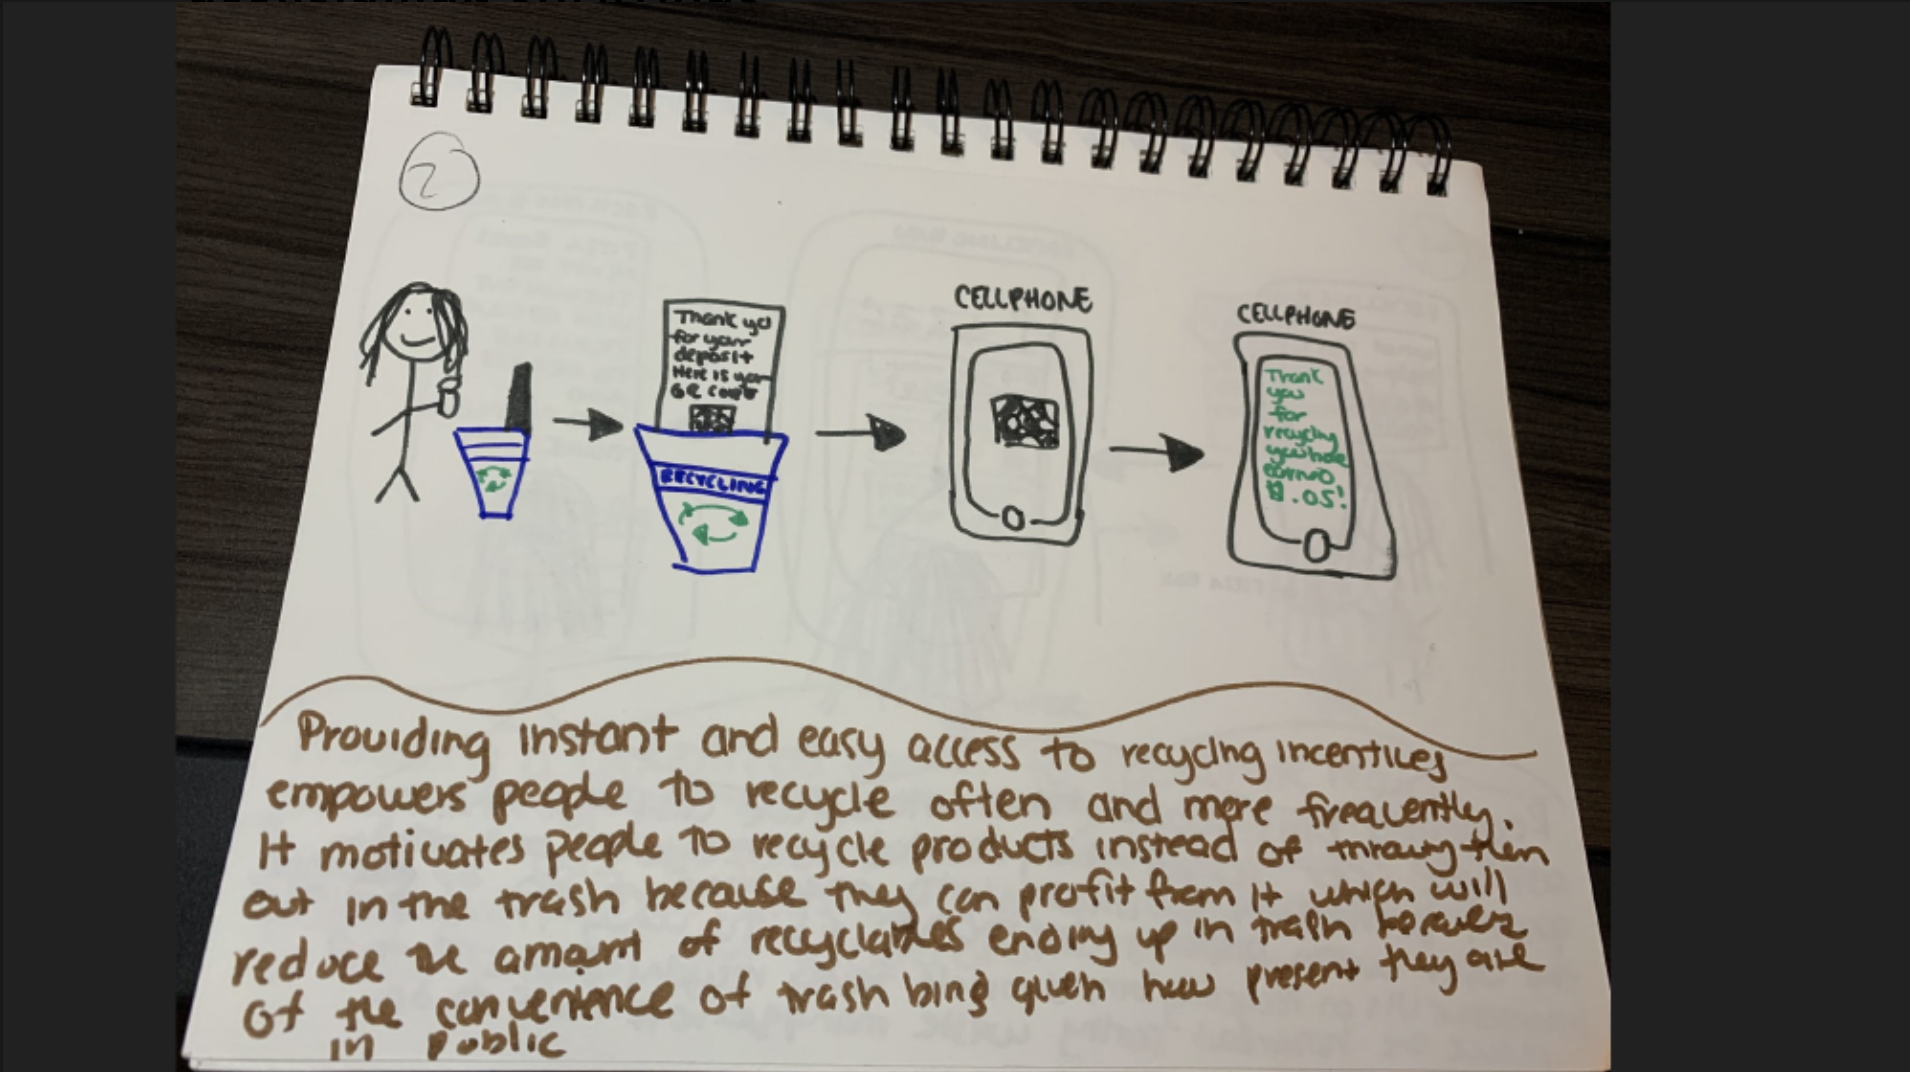 2
Thank you
for your
deposit
Here is your
QR code
RECYCLING
CELLPHONE
CELLPHONE
Thank
you
for
recycling
you have
earned
$.05!
Providing instant and easy access to recycling incentives
empowers people to recycle often and more frequently.
It motivates people to recycle products instead of throwing them
out in the trash because they can profit from it which will
reduce the amount of recyclables ending up in trash because
of the convenience of trash bins given how present they are
in public